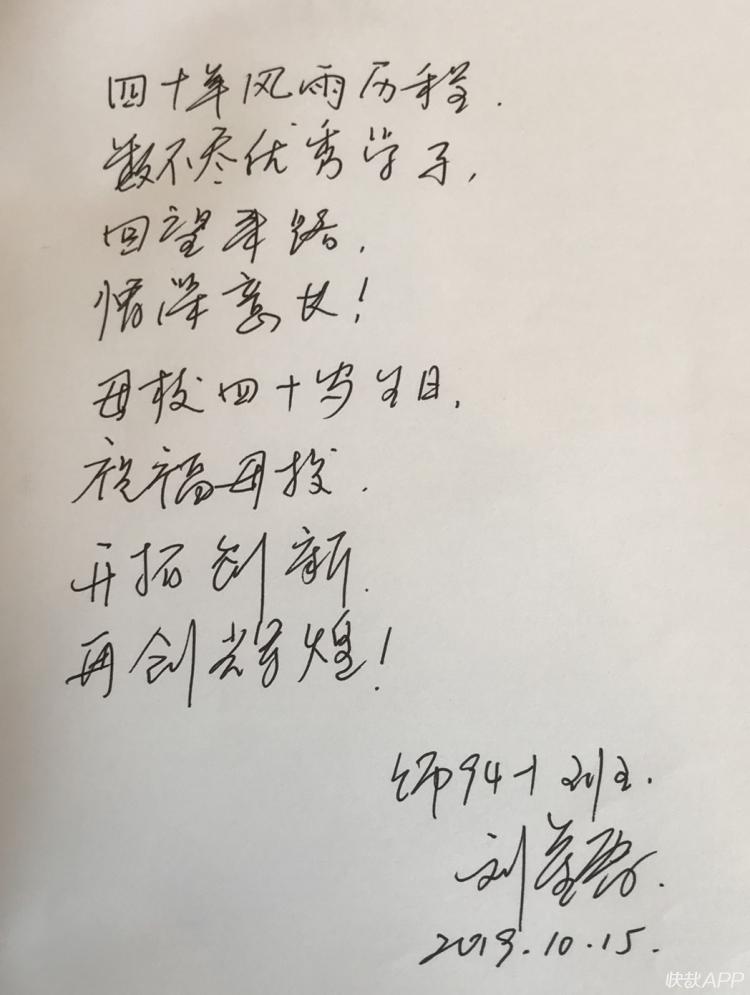 四十年风雨历程.
数不尽优秀学子,
回望来路,
情深意长!
母校四十岁生日,
祝福母校.
开拓创新.
再创辉煌!
师94-1 刘
2019.10.15.
快哉APP